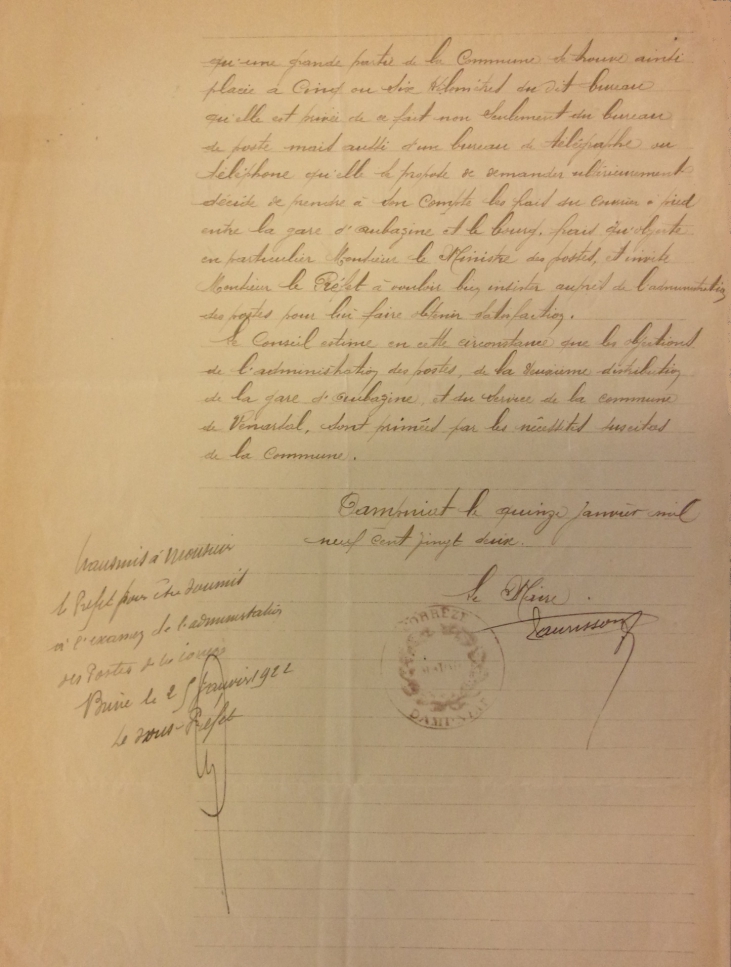 qu'une grande partie de la Commune se trouve ainsi
placée à Cinq ou Six Kilomètres du dit bureau
qu'elle est privée de ce fait non seulement du bureau
de poste mais aussi d'un bureau de télégraphe ou
téléphone qu'elle se propose de demander ultérieurement
décide de prendre à son compte les frais du courrier à pied
entre la gare d'aubazine et le bourg, frais qu'objecte
en particulier Monsieur le Ministre des postes, et invite
Monsieur le Préfet à vouloir bien insister auprès de l'administration
des postes pour lui faire obtenir satisfaction.
Le Conseil estime en cette circonstance que les objections
de l'administration des postes, de la deuxième distribution
de la gare d'aubazine, et du service de la commune
de Venarsal, sont primées par les nécessités susdites
de la Commune.
Dampniat le quinze janvier mil
neuf cent vingt deux.
Le Maire
CORRÈZE
DAMPNIAT
Transmis à Monsieur
le Préfet pour être soumis
à l'examen de l'administration
des Postes de la Corrèze
Brive le 25 Janvier 1922
Le Sous-Préfet